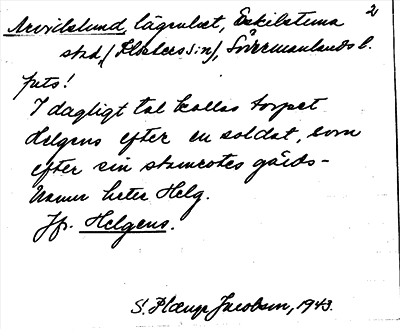 2
Arvidslund, lägenhet, Eskilstuna
stad, (Klosters sn), Södermanlands l.
puts!
I dagligt tal kallas torpet
Helgens efter en soldat, som
efter sin stamrotes gårds-
namn heter Helg.
Jfr. Helgens.
S. Plænge Jacobson, 1943.